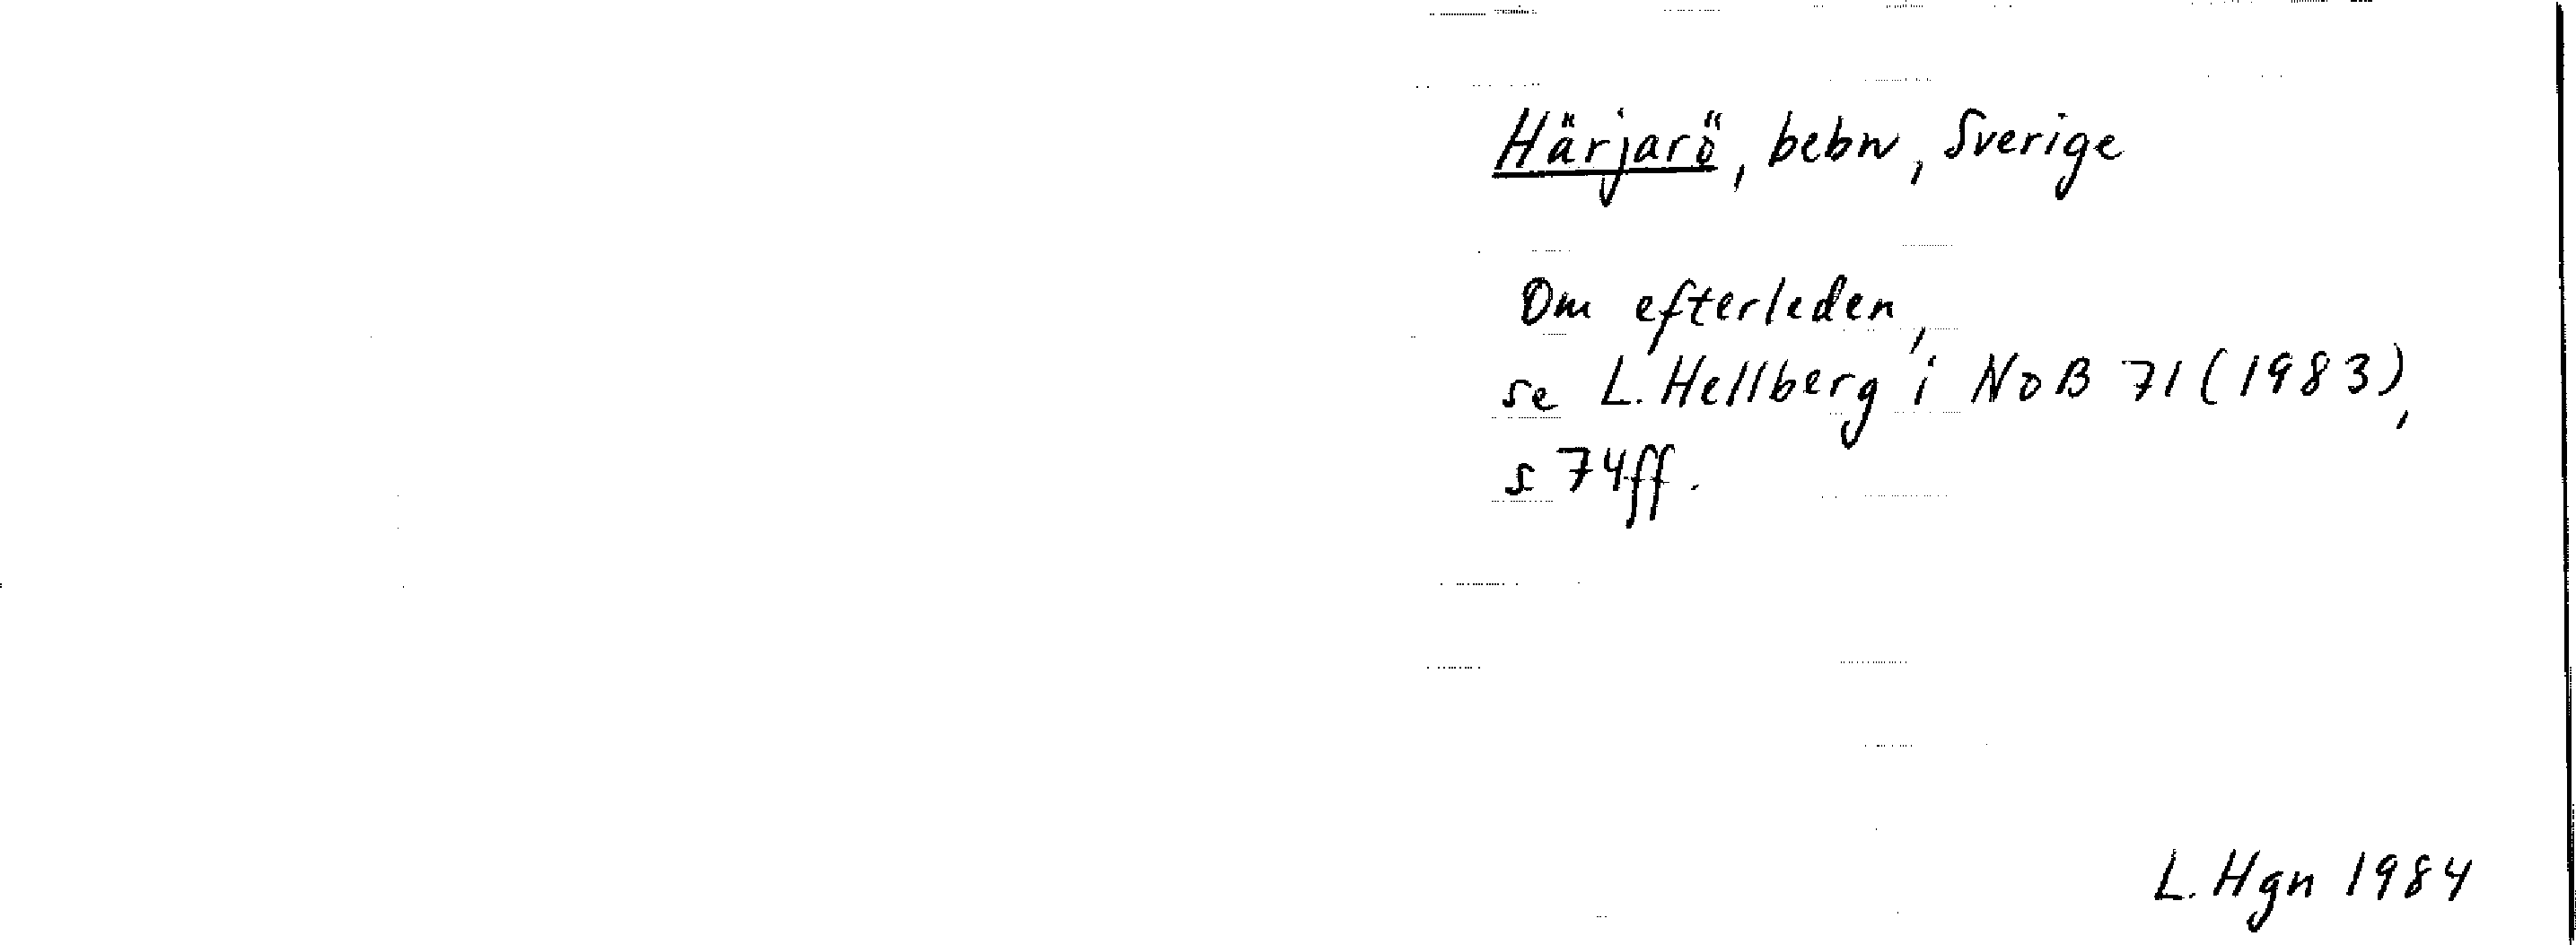 Härjarö, bebn, Sverige
Om efterleden,
se L. Hellberg i NoB 71 (1983),
s 74ff.
L. Hgn 1984